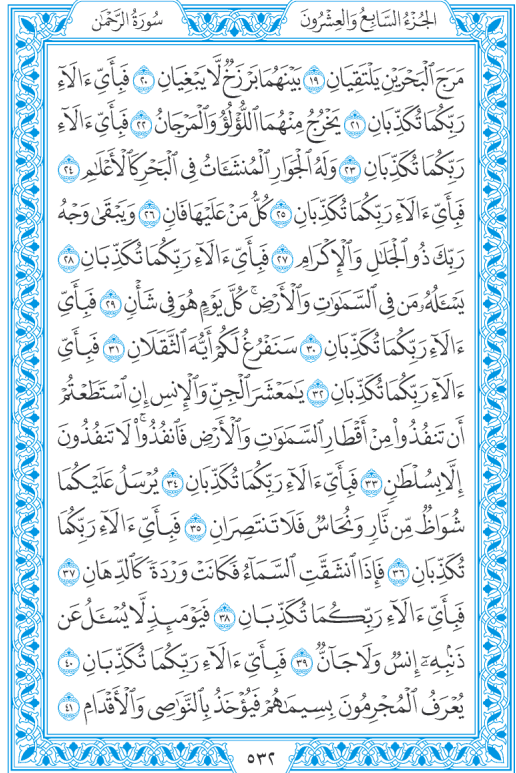 سُورَةُ الرَّحْمَٰن
الجُزْءُ السَّابِعُ وَالعِشْرُونَ
مَرَجَ ٱلْبَحْرَيْنِ يَلْتَقِيَانِ ١٩ بَيْنَهُمَا بَرْزَخٌ لَّا يَبْغِيَانِ ٢٠ فَبِأَيِّ ءَالَآءِ
رَبِّكُمَا تُكَذِّبَانِ ٢١ يَخْرُجُ مِنْهُمَا ٱللُّؤْلُؤُ وَٱلْمَرْجَانُ ٢٢ فَبِأَيِّ ءَالَآءِ
رَبِّكُمَا تُكَذِّبَانِ ٢٣ وَلَهُ ٱلْجَوَارِ ٱلْمُنشَـَٔاتُ فِى ٱلْبَحْرِ كَٱلْأَعْلَٰمِ ٢٤
فَبِأَيِّ ءَالَآءِ رَبِّكُمَا تُكَذِّبَانِ ٢٥ كُلُّ مَنْ عَلَيْهَا فَانٍ ٢٦ وَيَبْقَىٰ وَجْهُ
رَبِّكَ ذُو ٱلْجَلَٰلِ وَٱلْإِكْرَامِ ٢٧ فَبِأَيِّ ءَالَآءِ رَبِّكُمَا تُكَذِّبَانِ ٢٨
يَسْـَٔلُهُۥ مَن فِى ٱلسَّمَٰوَٰتِ وَٱلْأَرْضِ ۚ كُلَّ يَوْمٍ هُوَ فِى شَأْنٍ ٢٩ فَبِأَيِّ
ءَالَآءِ رَبِّكُمَا تُكَذِّبَانِ ٣٠ سَنَفْرُغُ لَكُمْ أَيُّهَ ٱلثَّقَلَانِ ٣١ فَبِأَيِّ
ءَالَآءِ رَبِّكُمَا تُكَذِّبَانِ ٣٢ يَٰمَعْشَرَ ٱلْجِنِّ وَٱلْإِنسِ إِنِ ٱسْتَطَعْتُمْ
أَن تَنفُذُوا۟ مِنْ أَقْطَارِ ٱلسَّمَٰوَٰتِ وَٱلْأَرْضِ فَٱنفُذُوا۟ ۚ لَا تَنفُذُونَ
إِلَّا بِسُلْطَٰنٍ ٣٣ فَبِأَيِّ ءَالَآءِ رَبِّكُمَا تُكَذِّبَانِ ٣٤ يُرْسَلُ عَلَيْكُمَا
شُوَاظٌ مِّن نَّارٍ وَنُحَاسٌ فَلَا تَنتَصِرَانِ ٣٥ فَبِأَيِّ ءَالَآءِ رَبِّكُمَا
تُكَذِّبَانِ ٣٦ فَإِذَا ٱنشَقَّتِ ٱلسَّمَآءُ فَكَانَتْ وَرْدَةً كَٱلدِّهَانِ ٣٧
فَبِأَيِّ ءَالَآءِ رَبِّكُمَا تُكَذِّبَانِ ٣٨ فَيَوْمَئِذٍ لَّا يُسْـَٔلُ عَن
ذَنۢبِهِۦٓ إِنسٌ وَلَا جَآنٌّ ٣٩ فَبِأَيِّ ءَالَآءِ رَبِّكُمَا تُكَذِّبَانِ ٤٠
يُعْرَفُ ٱلْمُجْرِمُونَ بِسِيمَٰهُمْ فَيُؤْخَذُ بِٱلنَّوَٰصِى وَٱلْأَقْدَامِ ٤١
٥٣٢